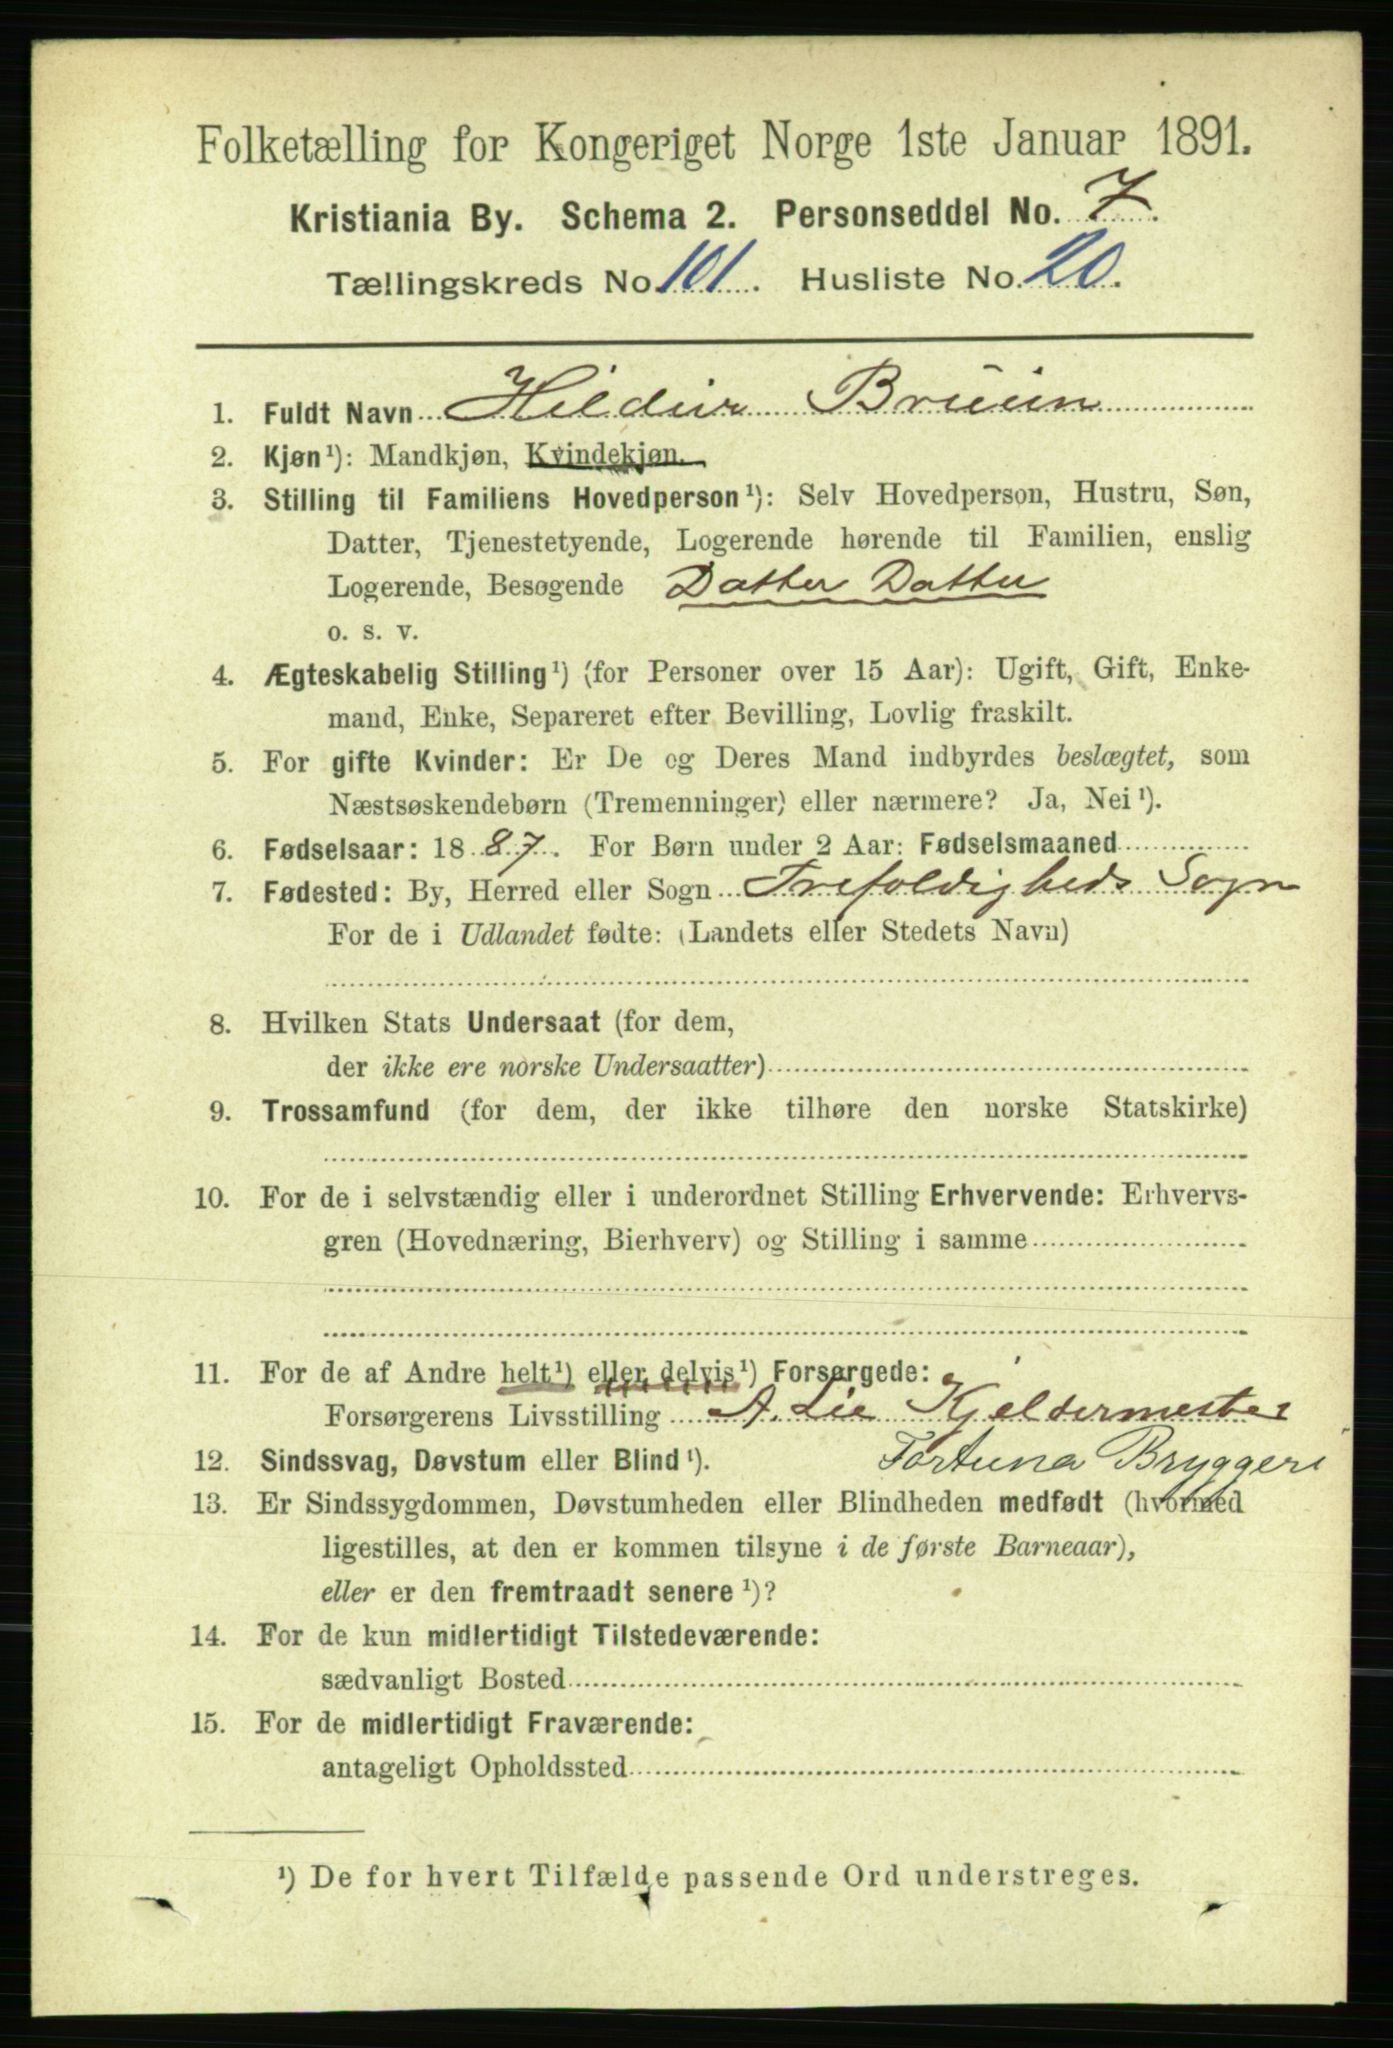 Folketælling for Kongeriget Norge 1ste Januar 1891.
Kristiania By. Schema 2. Personseddel No. 7.
Tællingskreds No. 101. Husliste No. 20.
1. Fuldt Navn Hildur Bruun
2. Kjøn¹): Mandkjøn, Kvindekjøn.
3. Stilling til Familiens Hovedperson¹): Selv Hovedperson, Hustru, Søn,
Datter, Tjenestetyende, Logerende hørende til Familien, enslig
Logerende, Besøgende Datter Datter
o. s. v.
4. Ægteskabelig Stilling¹) (for Personer over 15 Aar): Ugift, Gift, Enke-
mand, Enke, Separeret efter Bevilling, Lovlig fraskilt.
5. For gifte Kvinder: Er De og Deres Mand indbyrdes beslægtet, som
Næstsøskendebørn (Tremenninger) eller nærmere? Ja, Nei¹).
6. Fødselsaar: 1887. For Børn under 2 Aar: Fødselsmaaned
7. Fødested: By, Herred eller Sogn Trefoldigheds Sogn
For de i Udlandet fødte: (Landets eller Stedets Navn)
8. Hvilken Stats Undersaat (for dem,
der ikke ere norske Undersaatter)
9. Trossamfund (for dem, der ikke tilhøre den norske Statskirke)
10. For de i selvstændig eller i underordnet Stilling Erhvervende: Erhvervs-
gren (Hovednæring, Bierhverv) og Stilling i samme
11. For de af Andre helt¹) eller delvis¹) Forsørgede:
Forsørgerens Livsstilling A. Lie Kjeldermester
Fortuna Bryggeri
12. Sindssvag, Døvstum eller Blind¹).
13. Er Sindssygdommen, Døvstumheden eller Blindheden medfødt (hvormed
ligestilles, at den er kommen tilsyne i de første Barneaar),
eller er den fremtraadt senere¹)?
14. For de kun midlertidigt Tilstedeværende:
sædvanligt Bosted
15. For de midlertidigt Fraværende:
antageligt Opholdssted
¹) De for hvert Tilfælde passende Ord understreges.